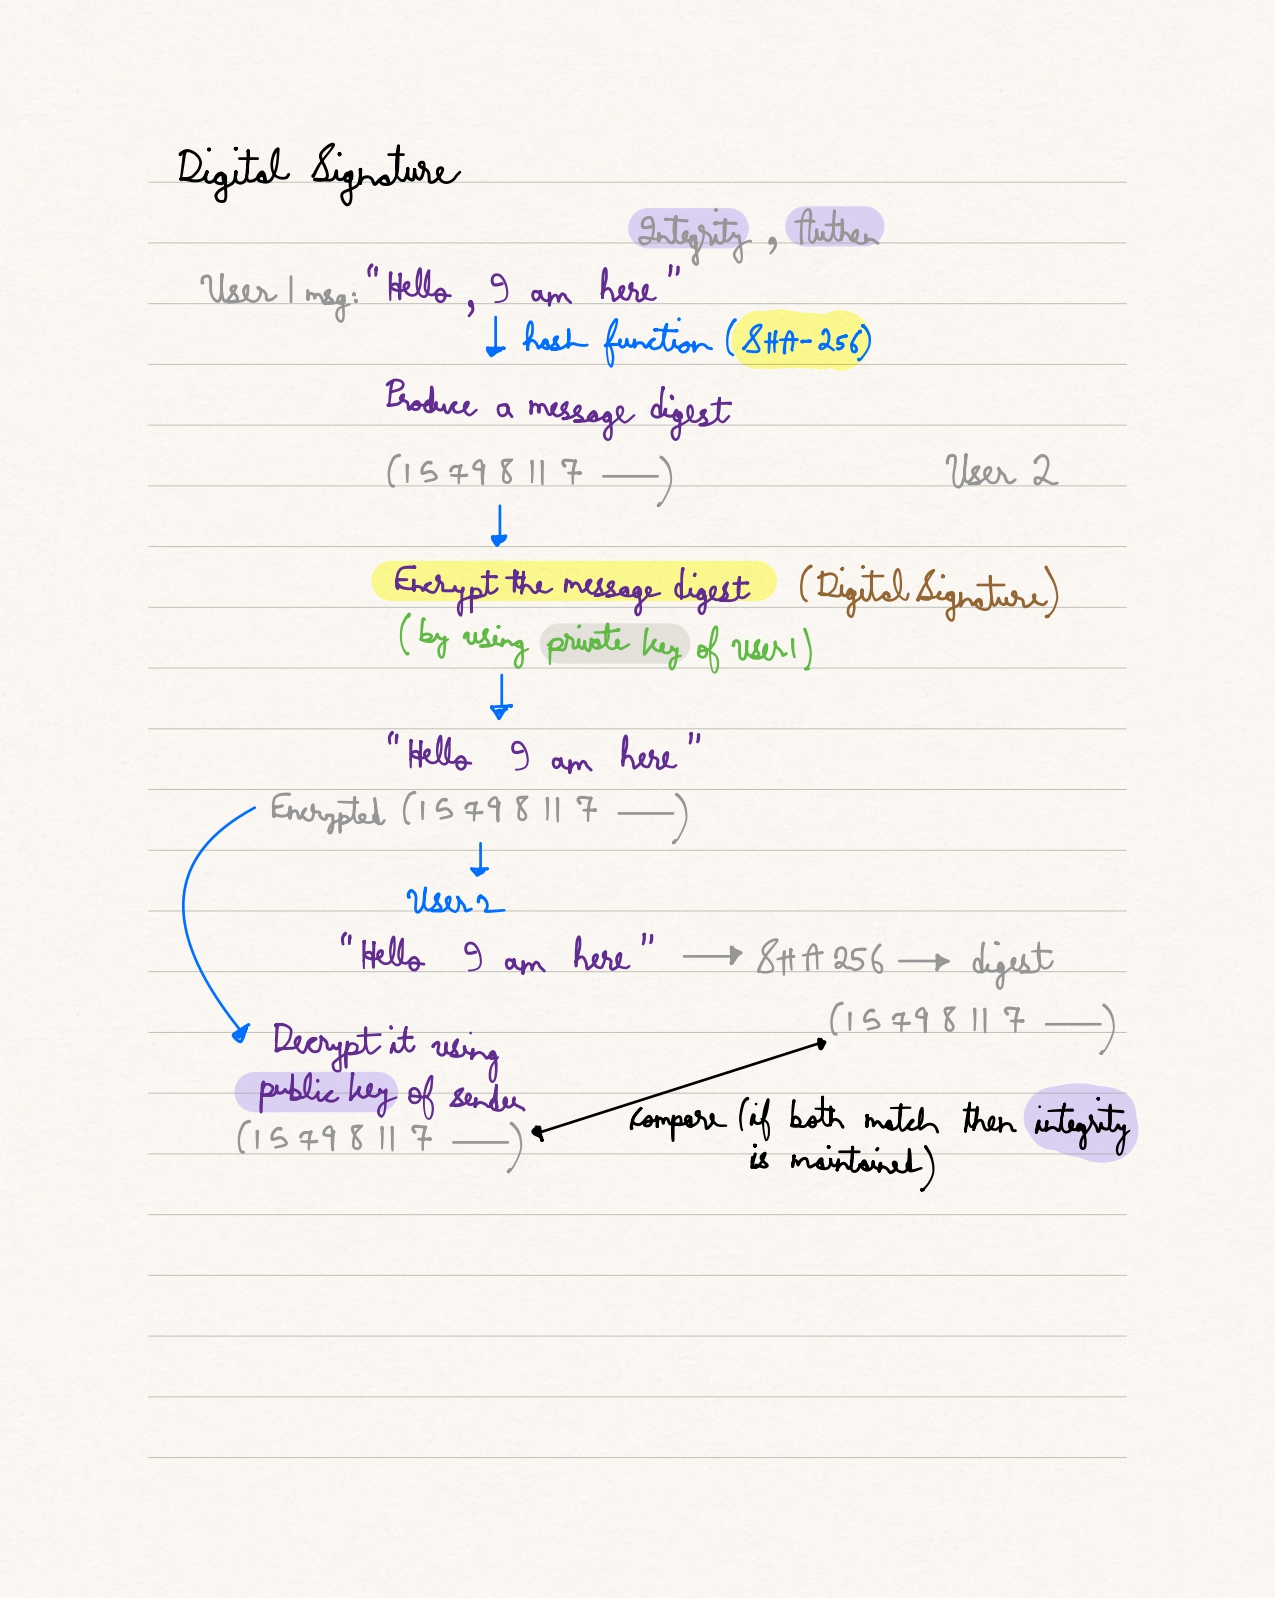 Digital Signature
Integrity, Authen
User 1 msg: "Hello, I am here"
hash function (SHA-256)
Produce a message digest
(15798117 —)
User 2
Encrypt the message digest (Digital Signature)
(by using private key of user1)
"Hello I am here"
Encrypted (15798117 —)
User 2
"Hello I am here" → SHA 256 → digest
(15798117 —)
Decrypt it using
public key of sender
(15798117 —)
Compare (if both match then integrity
is maintained)